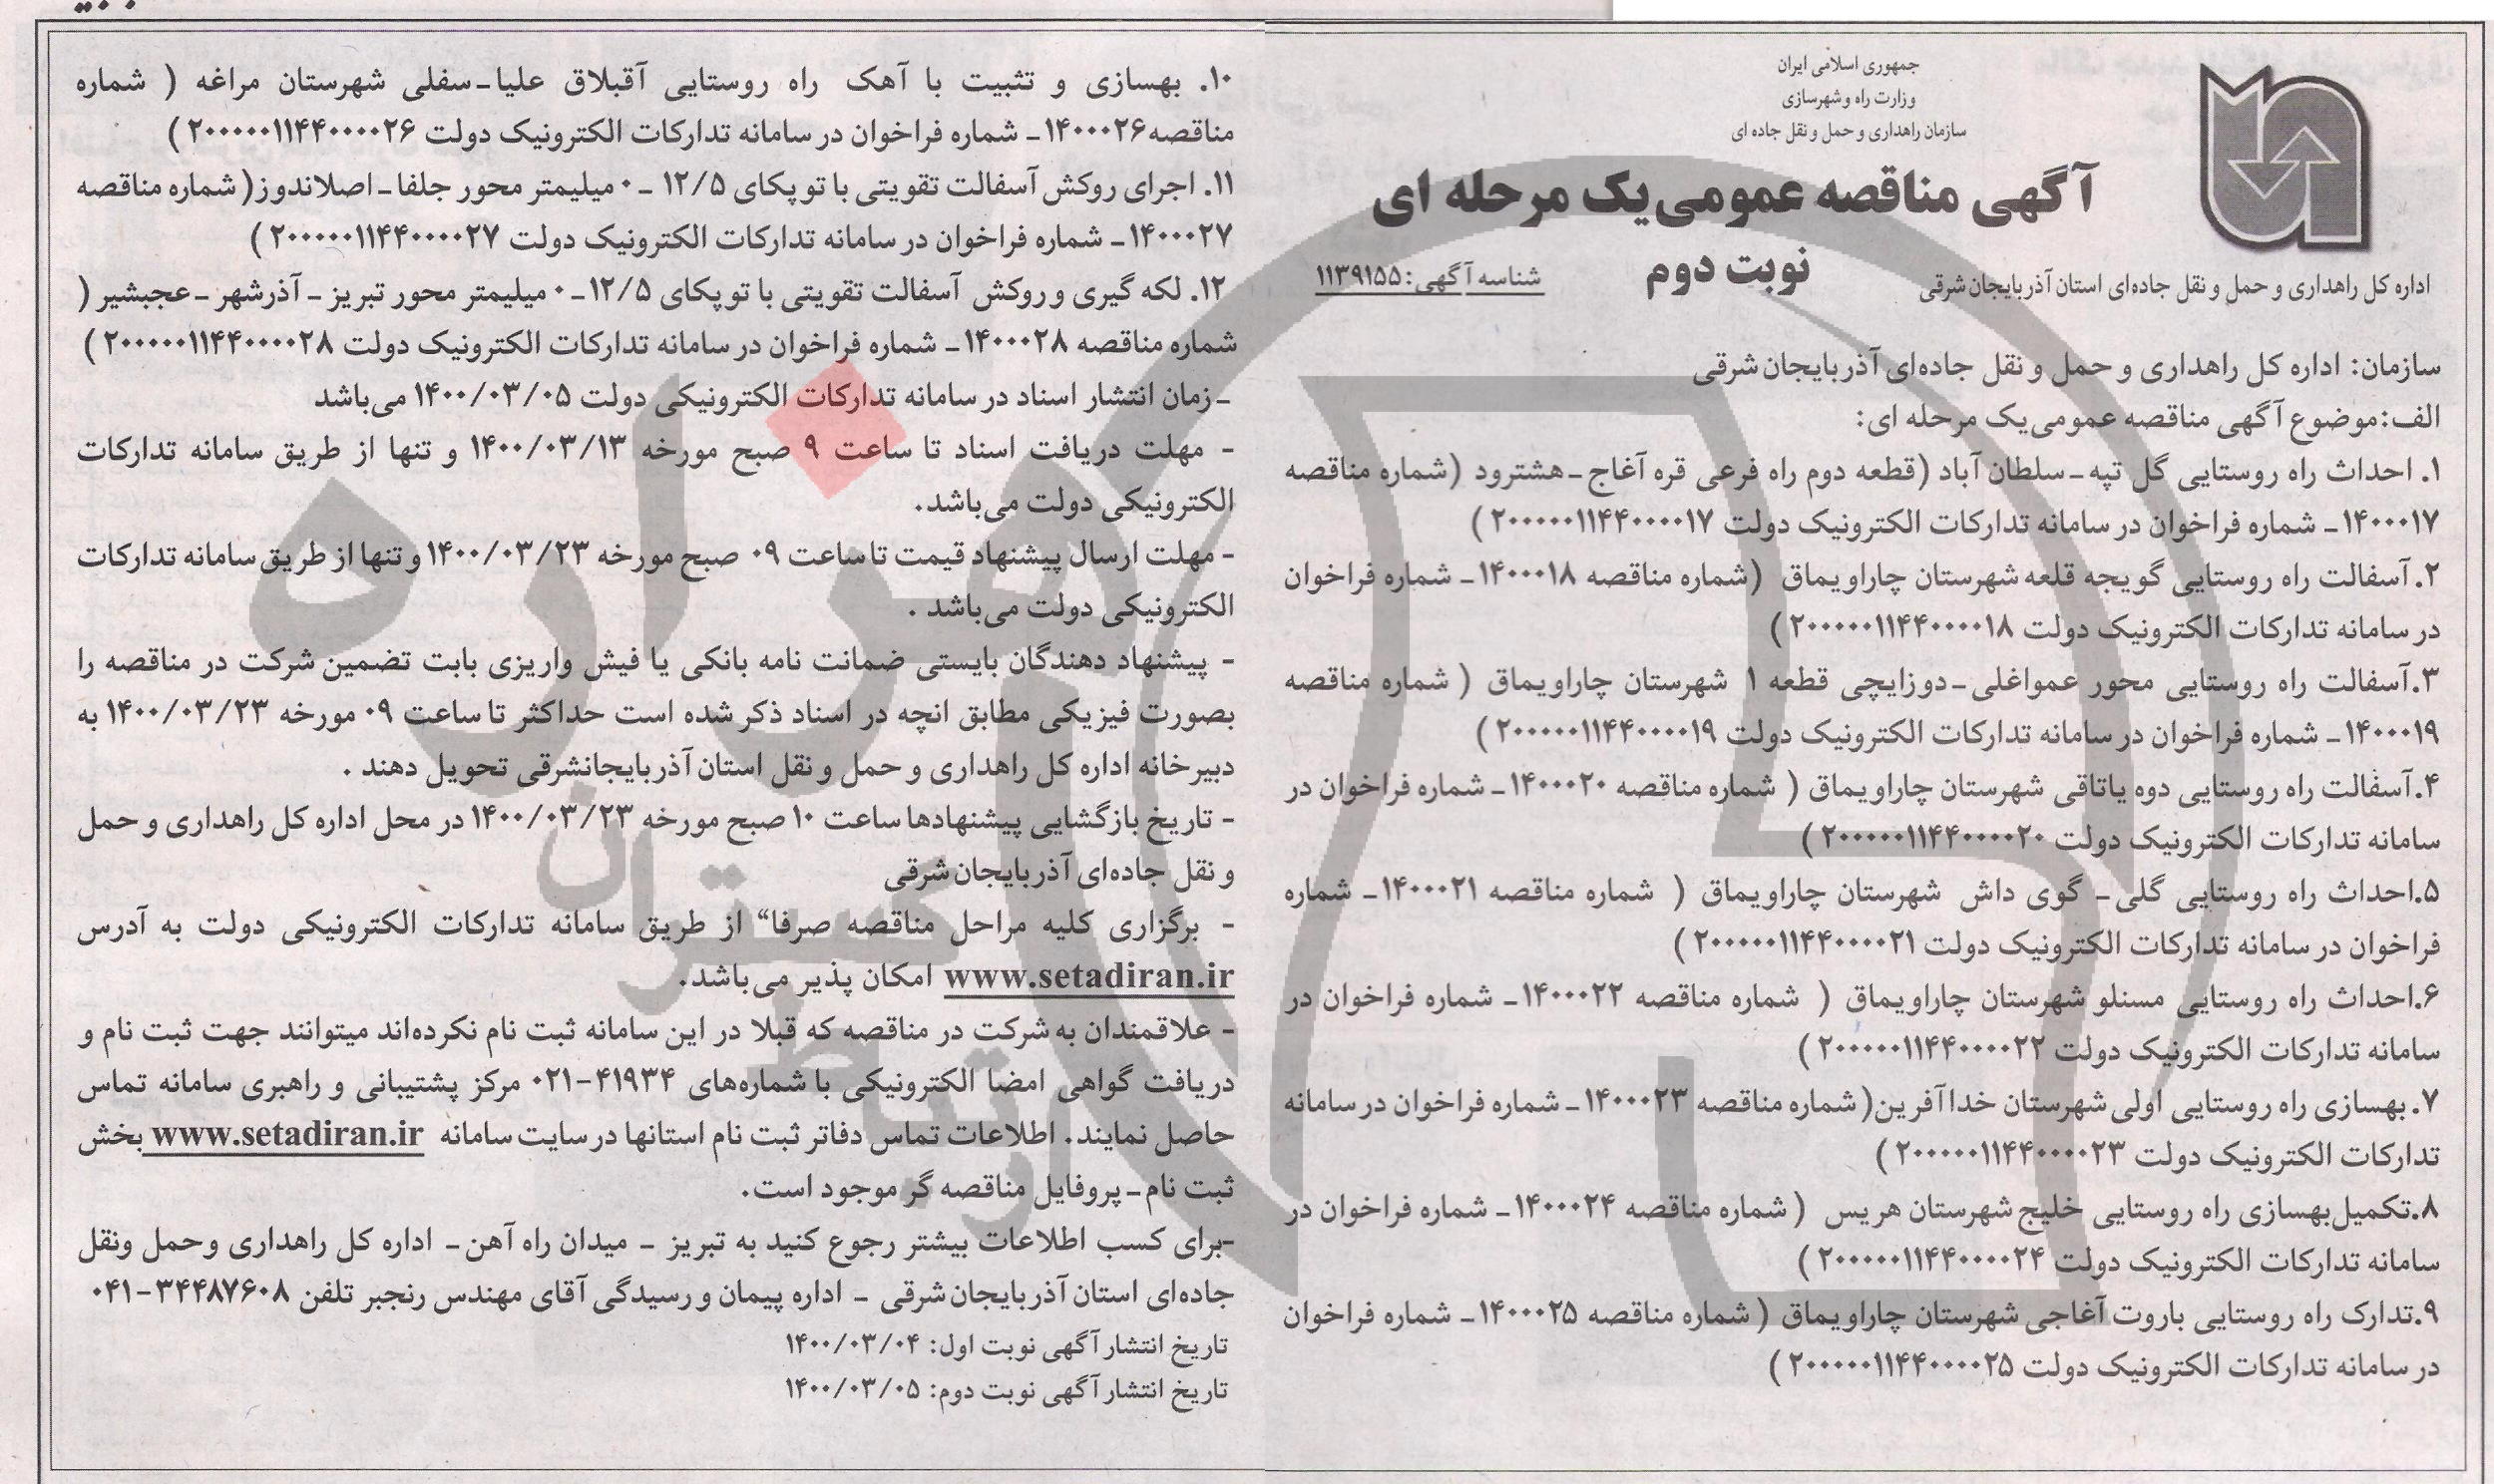 جمهوری اسلامی ایران
وزارت راه و شهرسازی
سازمان راهداری و حمل و نقل جاده ای
آگهی مناقصه عمومی یک مرحله ای
نوبت دوم
شناسه آگهی: ۱۱۳۹۱۵۵
اداره کل راهداری و حمل و نقل جاده‌ای استان آذربایجان شرقی
سازمان: اداره کل راهداری و حمل و نقل جاده‌ای آذربایجان شرقی
الف: موضوع آگهی مناقصه عمومی یک مرحله ای:
۱. احداث راه روستایی گل تپه ـ سلطان آباد (قطعه دوم راه فرعی قره آغاج ـ هشترود (شماره مناقصه
۱۴۰۰۰۱۷ـ شماره فراخوان در سامانه تدارکات الکترونیک دولت ۲۰۰۰۰۰۱۱۴۴۰۰۰۰۱۷)
۲. آسفالت راه روستایی گویجه قلعه شهرستان چاراویماق (شماره مناقصه ۱۴۰۰۰۱۸ـ شماره فراخوان
در سامانه تدارکات الکترونیک دولت ۲۰۰۰۰۰۱۱۴۴۰۰۰۰۱۸)
۳.آسفالت راه روستایی محور عمواغلی ـ دوزایچی قطعه ۱ شهرستان چاراویماق ( شماره مناقصه
۱۴۰۰۰۱۹ـ شماره فراخوان در سامانه تدارکات الکترونیک دولت ۲۰۰۰۰۰۱۱۴۴۰۰۰۰۱۹)
۴.آسفالت راه روستایی دوه یاتاقی شهرستان چاراویماق ( شماره مناقصه ۱۴۰۰۰۲۰ـ شماره فراخوان در
سامانه تدارکات الکترونیک دولت ۲۰۰۰۰۰۱۱۴۴۰۰۰۰۲۰)
۵.احداث راه روستایی گلی ـ گوی داش شهرستان چاراویماق ( شماره مناقصه ۱۴۰۰۰۲۱ـ شماره
فراخوان در سامانه تدارکات الکترونیک دولت ۲۰۰۰۰۰۱۱۴۴۰۰۰۰۲۱)
۶.احداث راه روستایی مسنلو شهرستان چاراویماق ( شماره مناقصه ۱۴۰۰۰۲۲ـ شماره فراخوان در
سامانه تدارکات الکترونیک دولت ۲۰۰۰۰۰۱۱۴۴۰۰۰۰۲۲)
۷. بهسازی راه روستایی اولی شهرستان خداآفرین( شماره مناقصه ۱۴۰۰۰۲۳ـ شماره فراخوان در سامانه
تدارکات الکترونیک دولت ۲۰۰۰۰۰۱۱۴۴۰۰۰۰۲۳)
۸.تکمیل بهسازی راه روستایی خلیج شهرستان هریس ( شماره مناقصه ۱۴۰۰۰۲۴ـ شماره فراخوان در
سامانه تدارکات الکترونیک دولت ۲۰۰۰۰۰۱۱۴۴۰۰۰۰۲۴)
۹.تدارک راه روستایی باروت آغاجی شهرستان چاراویماق ( شماره مناقصه ۱۴۰۰۰۲۵ـ شماره فراخوان
در سامانه تدارکات الکترونیک دولت ۲۰۰۰۰۰۱۱۴۴۰۰۰۰۲۵)
۱۰. بهسازی و تثبیت با آهک راه روستایی آقبلاق علیا ـ سفلی شهرستان مراغه ( شماره
مناقصه ۱۴۰۰۰۲۶ـ شماره فراخوان در سامانه تدارکات الکترونیک دولت ۲۰۰۰۰۰۱۱۴۴۰۰۰۰۲۶)
۱۱. اجرای روکش آسفالت تقویتی با توپکای ۱۲/۵ ـ ۰ میلیمتر محور جلفا ـ اصلاندوز( شماره مناقصه
۱۴۰۰۰۲۷ـ شماره فراخوان در سامانه تدارکات الکترونیک دولت ۲۰۰۰۰۰۱۱۴۴۰۰۰۰۲۷)
۱۲. لکه گیری و روکش آسفالت تقویتی با توپکای ۱۲/۵ـ ۰ میلیمتر محور تبریز ـ آذرشهر ـ عجبشیر (
شماره مناقصه ۱۴۰۰۰۲۸ـ شماره فراخوان در سامانه تدارکات الکترونیک دولت ۲۰۰۰۰۰۱۱۴۴۰۰۰۰۲۸)
ـ زمان انتشار اسناد در سامانه تدارکات الکترونیکی دولت ۱۴۰۰/۰۳/۰۵ می‌باشد
- مهلت دریافت اسناد تا ساعت ۹ صبح مورخه ۱۴۰۰/۰۳/۱۳ و تنها از طریق سامانه تدارکات
الکترونیکی دولت می‌باشد.
- مهلت ارسال پیشنهاد قیمت تا ساعت ۰۹ صبح مورخه ۱۴۰۰/۰۳/۲۳ و تنها از طریق سامانه تدارکات
الکترونیکی دولت می‌باشد .
- پیشنهاد دهندگان بایستی ضمانت نامه بانکی یا فیش واریزی بابت تضمین شرکت در مناقصه را
بصورت فیزیکی مطابق انچه در اسناد ذکر شده است حداکثر تا ساعت ۰۹ مورخه ۱۴۰۰/۰۳/۲۳ به
دبیرخانه اداره کل راهداری و حمل و نقل استان آذربایجانشرقی تحویل دهند .
- تاریخ بازگشایی پیشنهادها ساعت ۱۰ صبح مورخه ۱۴۰۰/۰۳/۲۳ در محل اداره کل راهداری و حمل
و نقل جاده‌ای آذربایجان شرقی
- برگزاری کلیه مراحل مناقصه صرفا“ از طریق سامانه تدارکات الکترونیکی دولت به آدرس
www.setadiran.ir امکان پذیر می‌باشد.
- علاقمندان به شرکت در مناقصه که قبلا در این سامانه ثبت نام نکرده‌اند میتوانند جهت ثبت نام و
دریافت گواهی امضا الکترونیکی با شماره‌های ۴۱۹۳۴-۰۲۱ مرکز پشتیبانی و راهبری سامانه تماس
حاصل نمایند. اطلاعات تماس دفاتر ثبت نام استانها در سایت سامانه www.setadiran.ir بخش
ثبت نام ـ پروفایل مناقصه گر موجود است.
-برای کسب اطلاعات بیشتر رجوع کنید به تبریز ـ میدان راه آهن ـ اداره کل راهداری و حمل ونقل
جاده‌ای استان آذربایجان شرقی ـ اداره پیمان و رسیدگی آقای مهندس رنجبر تلفن ۳۴۴۸۷۶۰۸-۰۴۱
تاریخ انتشار آگهی نوبت اول: ۱۴۰۰/۰۳/۰۴
تاریخ انتشار آگهی نوبت دوم: ۱۴۰۰/۰۳/۰۵